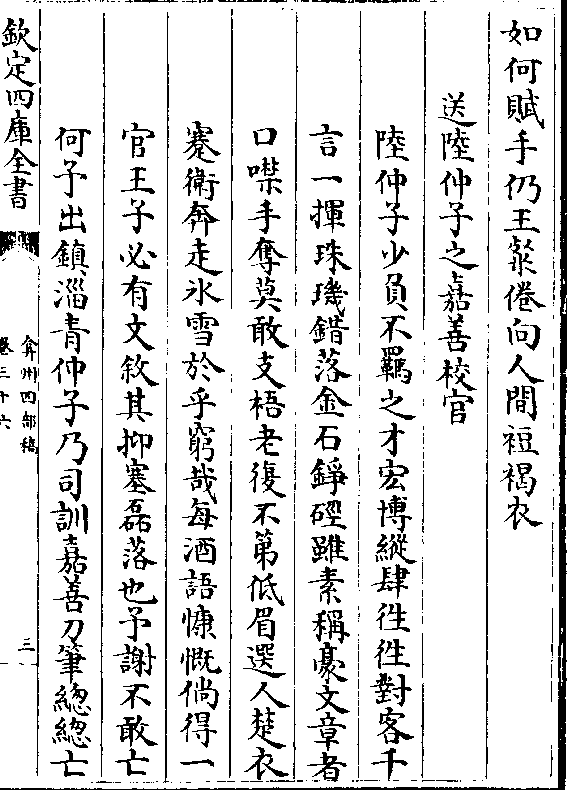 如何賦手仍王粲倦向人間裋褐衣
送陸仲子之嘉善校官
陸仲子少負不羈之才宏博縱肆徃徃對客千
言一揮珠璣錯落金石錚硜雖素稱豪文章者
口噤手奪莫敢支梧老復不第低眉選人楚衣
蹇衛奔走氷雪於乎窮哉每酒語慷慨倘得一
官王子必有文敘其抑塞磊落也予謝不敢亡
何予出鎮淄青仲子乃司訓嘉善刀筆總總亡
欽定四庫全書
弇州四部稿
卷三十六
三